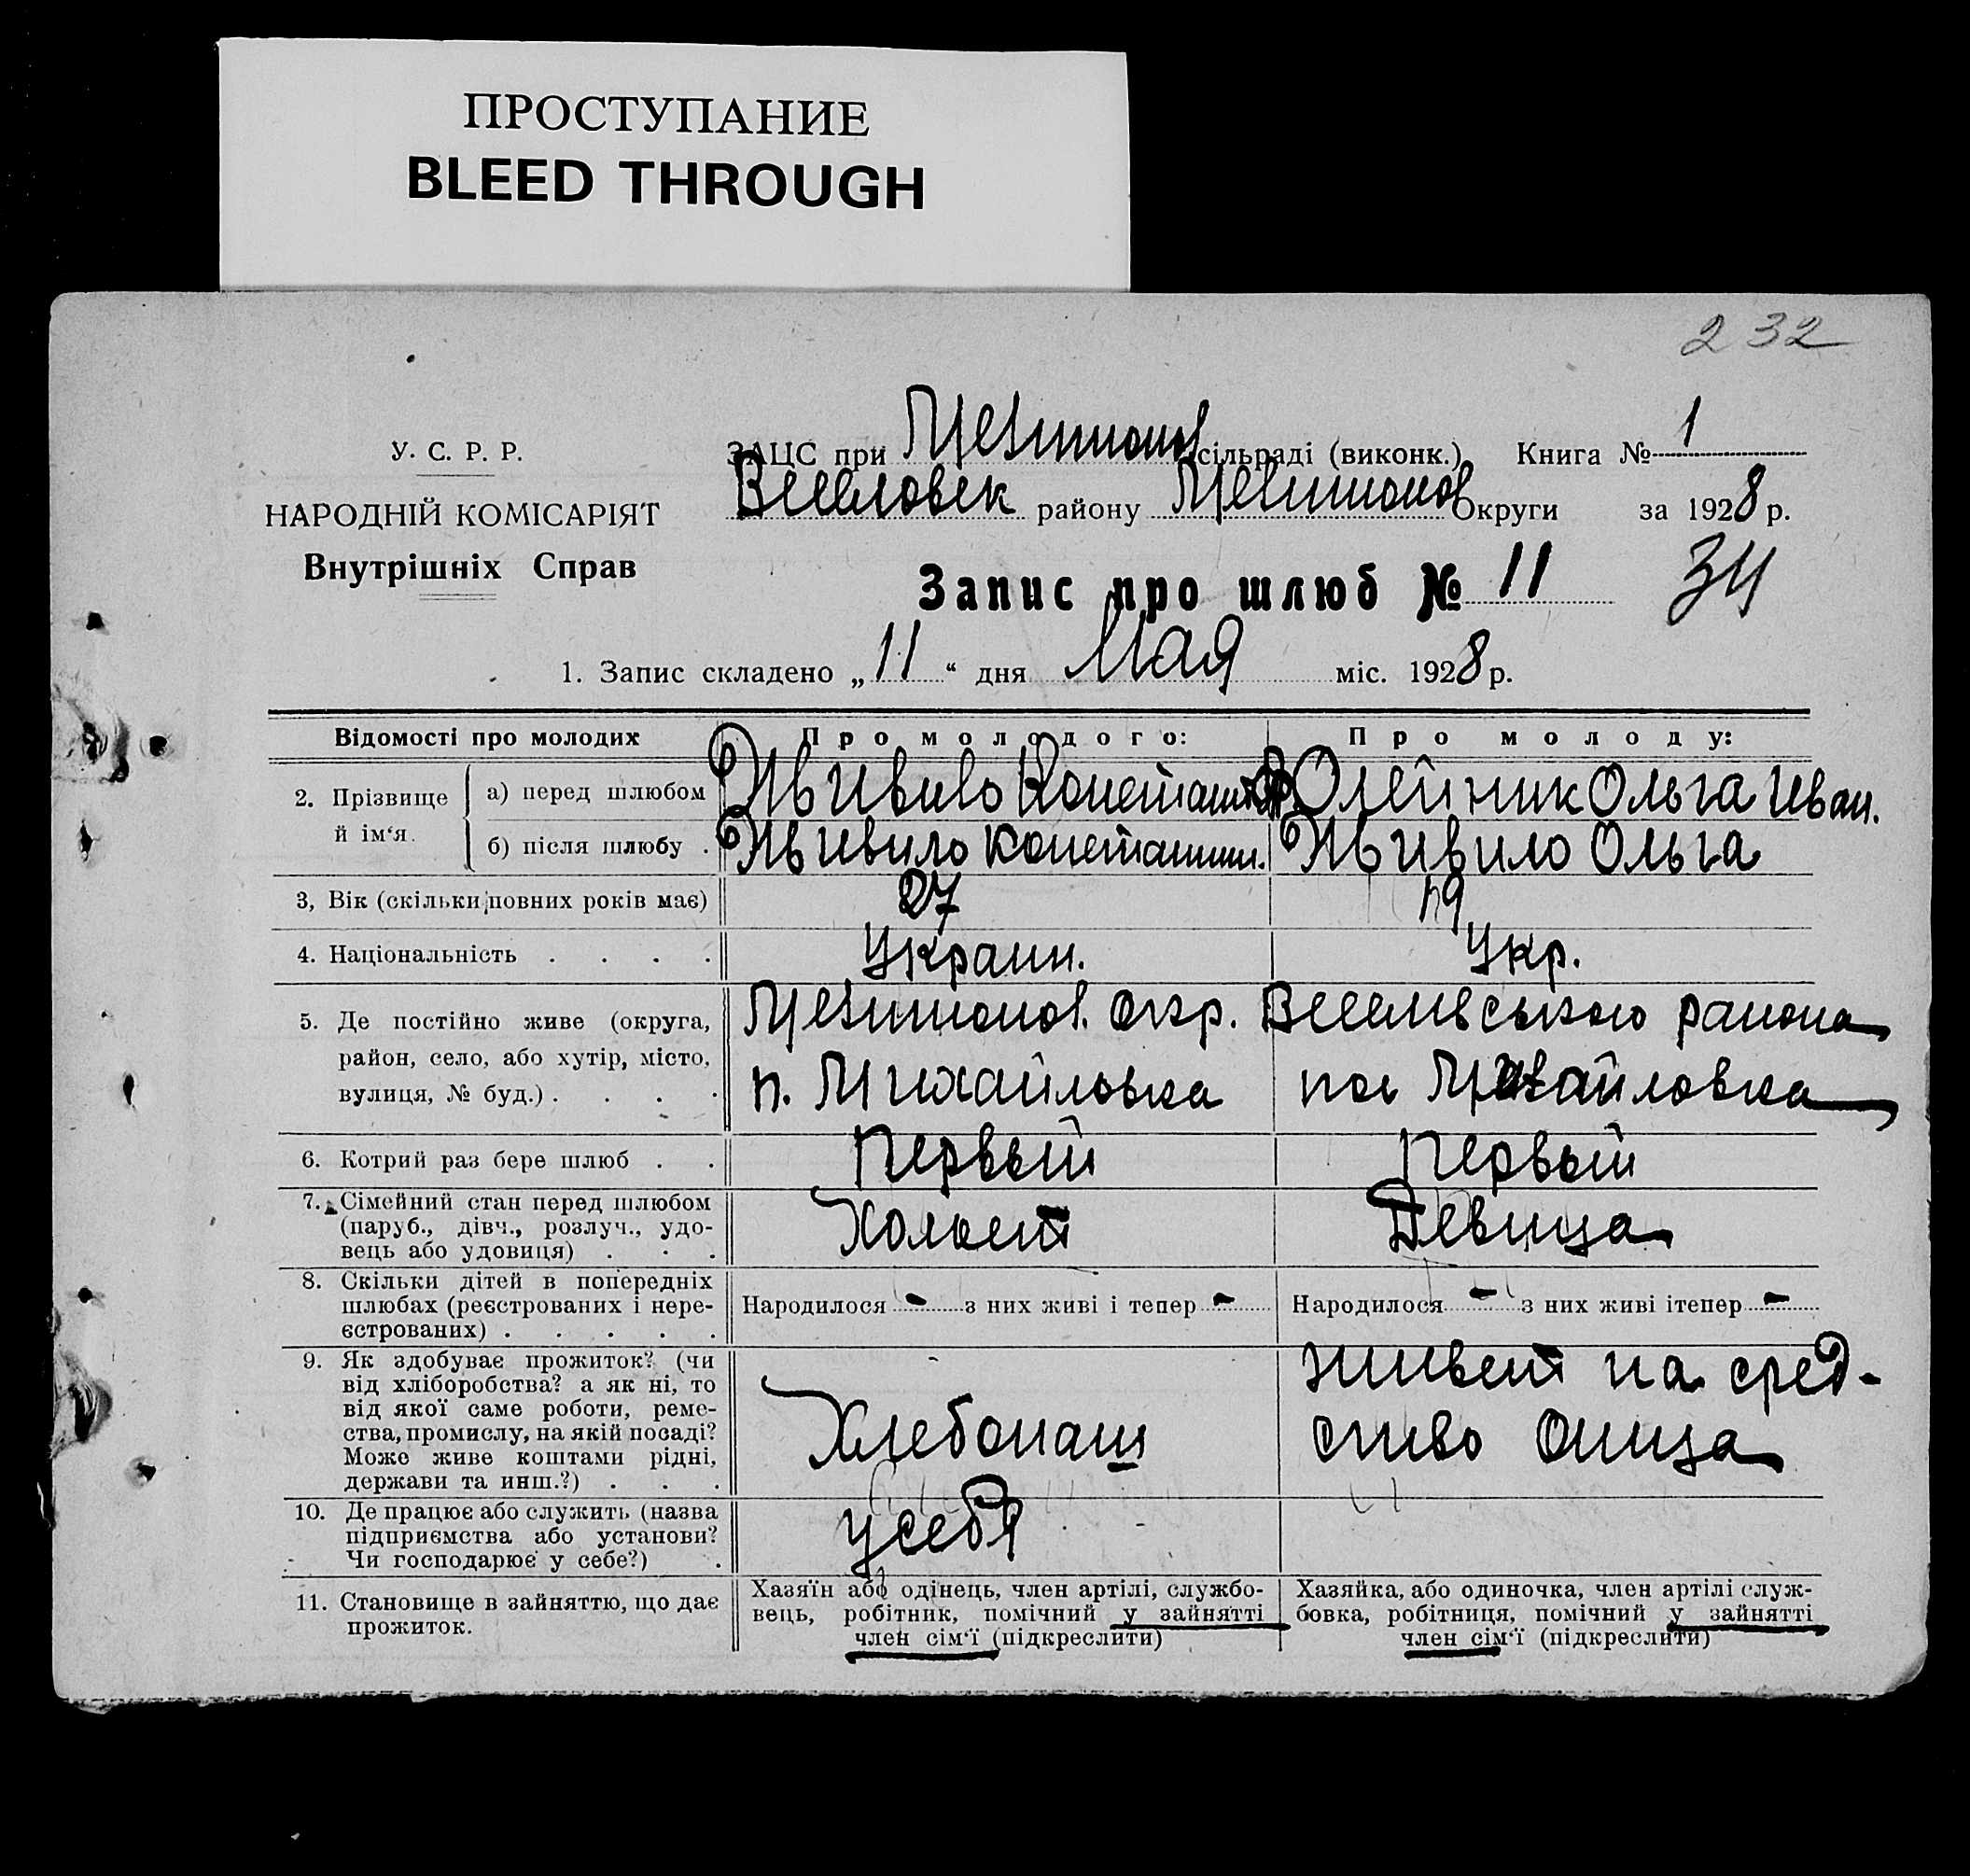 ПРОСТУПАНИЕ
BLEED THROUGH
232
У. С. Р. Р.
НАРОДНІЙ КОМІСАРІЯТ
Внутрішніх Справ
ЗАЦС при сільраді (виконк.) Книга № 1
району Округи за 1928 р.
Запис про шлюб № 11
34
1. Запис складено „11“ дня Мая міс. 1928 р.
Відомості про молодих
Про молодого:
Про молоду:
2. Прізвище й ім‘я.
а) перед шлюбом
Олейник Ольга Иван.
б) після шлюбу .
Ольга
3, Вік (скільки повних років має)
27
19
4. Національність . . . .
Украин.
Укр.
5. Де постійно живе (округа,
район, село, або хутір, місто,
вулиця, № буд.) . . . .
окр.
п. Михайловка
района
пос Михайловка
6. Котрий раз бере шлюб . .
Первый
Первый
7. Сімейний стан перед шлюбом
(паруб., дівч., розлуч., удо-
вець або удовиця) . . .
Холост
Девица
8. Скільки дітей в попередніх
шлюбах (реєстрованих і нере-
єстрованих) . . . . .
Народилося - з них живі і тепер -
Народилося - з них живі ітепер -
9. Як здобуває прожиток? (чи
від хліборобства? а як ні, то
від якої саме роботи, реме-
ства, промислу, на якій посаді?
Може живе коштами рідні,
держави та инш.?) . . .
Хлебопаш
живет на сред-
ство отца
10. Де працює або служить (назва
підприємства або установи?
Чи господарює у себе?) .
у себя
11. Становище в зайняттю, що дає
прожиток.
Хазяїн або одінець, член артілі, службо-
вець, робітник, помічний у зайнятті
член сім‘ї (підкреслити)
Хазяйка, або одиночка, член артілі служ-
бовка, робітниця, помічний у зайнятті
член сім‘ї (підкреслити)